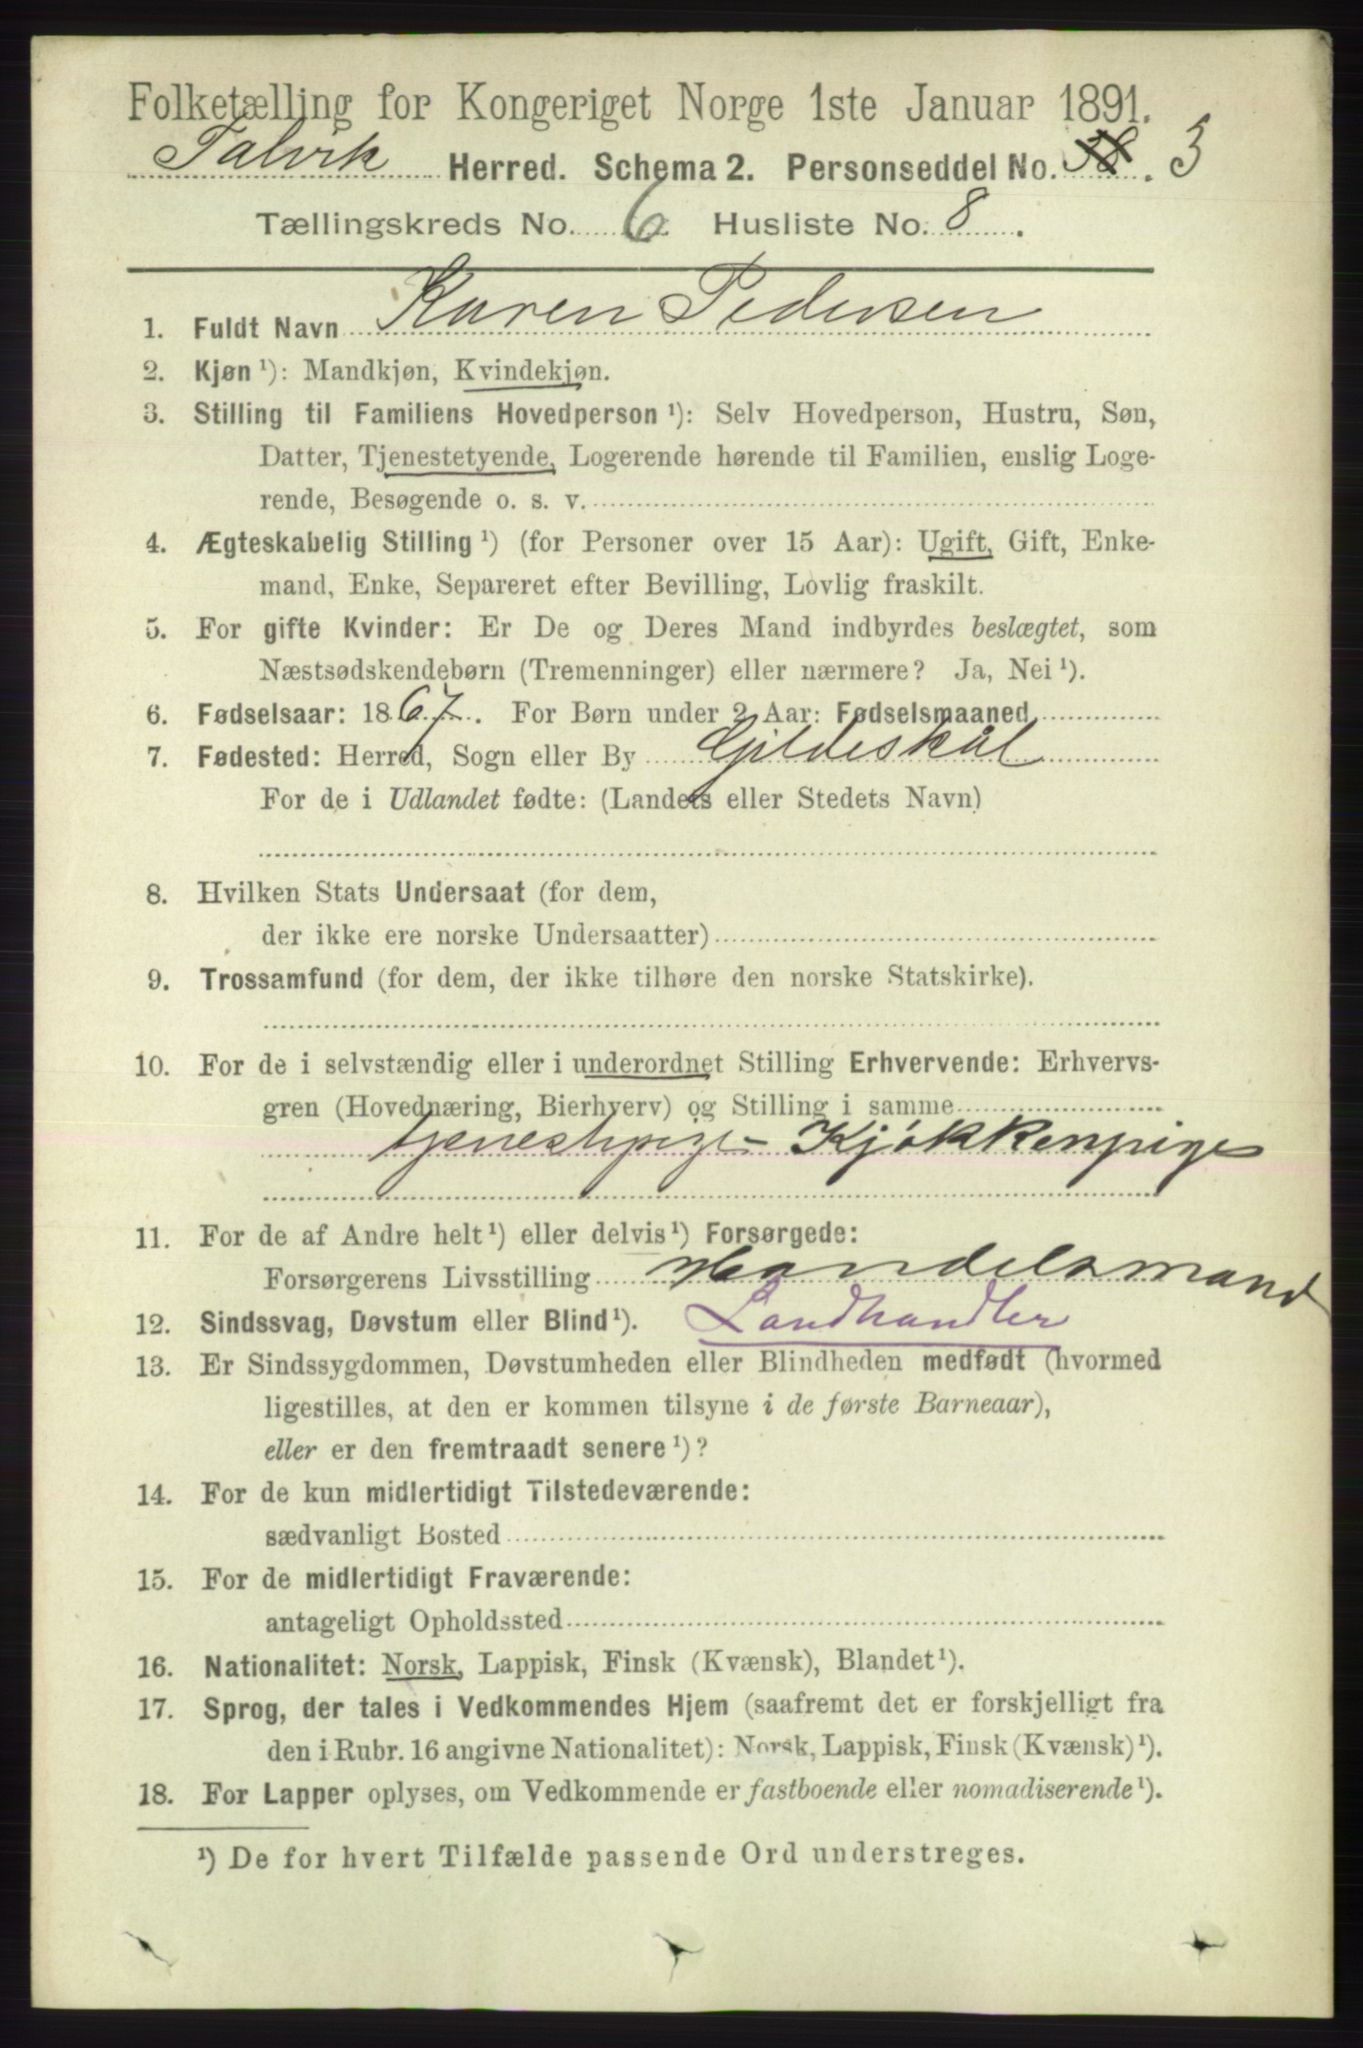 Folketælling for Kongeriget Norge 1ste Januar 1891.
Talvik Herred. Schema 2. Personseddel No. 38. 3
Tællingskreds No. 6 Husliste No. 8.
1. Fuldt Navn Karen Pedersen
2. Kjøn ¹): Mandkjøn, Kvindekjøn.
3. Stilling til Familiens Hovedperson ¹): Selv Hovedperson, Hustru, Søn,
Datter, Tjenestetyende, Logerende hørende til Familien, enslig Loge-
rende, Besøgende o. s. v.
4. Ægteskabelig Stilling ¹) (for Personer over 15 Aar): Ugift, Gift, Enke-
mand, Enke, Separeret efter Bevilling, Lovlig fraskilt.
5. For gifte Kvinder: Er De og Deres Mand indbyrdes beslægtet, som
Næstsødskendebørn (Tremenninger) eller nærmere? Ja, Nei ¹).
6. Fødselsaar: 1867. For Børn under 2 Aar: Fødselsmaaned
7. Fødested: Herred, Sogn eller By Gildeskål
For de i Udlandet fødte: (Landets eller Stedets Navn)
8. Hvilken Stats Undersaat (for dem,
der ikke ere norske Undersaatter)
9. Trossamfund (for dem, der ikke tilhøre den norske Statskirke).
10. For de i selvstændig eller i underordnet Stilling Erhvervende: Erhvervs-
gren (Hovednæring, Bierhverv) og Stilling i samme
tjenestpige - Kjøkkenpige
11. For de af Andre helt ¹) eller delvis ¹) Forsørgede:
Forsørgerens Livsstilling Handelsmand
12. Sindssvag, Døvstum eller Blind ¹). Landhandler
13. Er Sindssygdommen, Døvstumheden eller Blindheden medfødt (hvormed
ligestilles, at den er kommen tilsyne i de første Barneaar),
eller er den fremtraadt senere ¹)?
14. For de kun midlertidigt Tilstedeværende:
sædvanligt Bosted
15. For de midlertidigt Fraværende:
antageligt Opholdssted
16. Nationalitet: Norsk, Lappisk, Finsk (Kvænsk), Blandet ¹).
17. Sprog, der tales i Vedkommendes Hjem (saafremt det er forskjelligt fra
den i Rubr. 16 angivne Nationalitet): Norsk, Lappisk, Finsk (Kvænsk) ¹).
18. For Lapper oplyses, om Vedkommende er fastboende eller nomadiserende ¹).
¹) De for hvert Tilfælde passende Ord understreges.